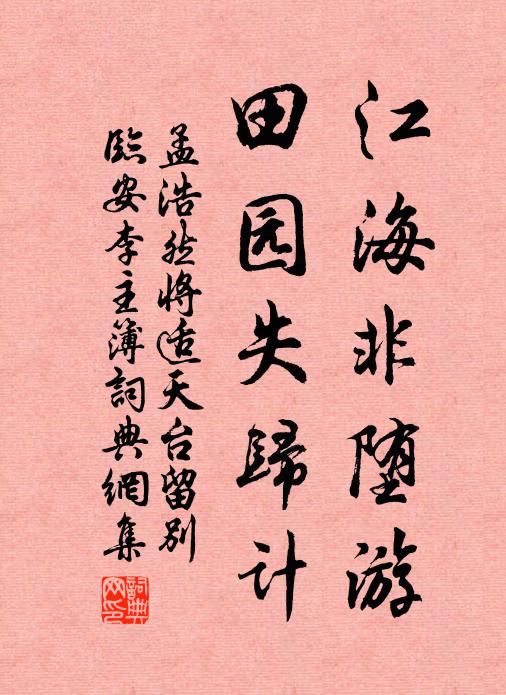 江海非堕游
田园失歸计
孟浩然将适天台留别
臨安李主簿詞典網集
詞典
网印